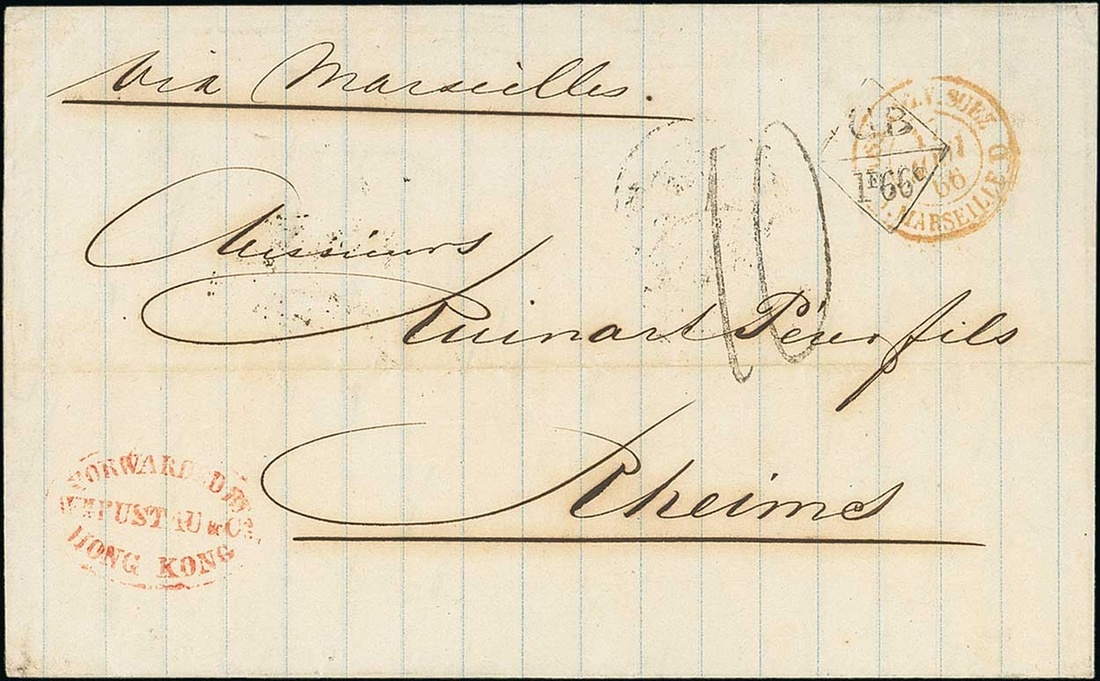 via Marseilles.
G.B
1F66c
SUEZ
66
MARSEILLE
10
Messieurs
Ruinart Pére & fils
Rheims
FORWARDED BY
Wm PUSTAU & Co.
HONG KONG